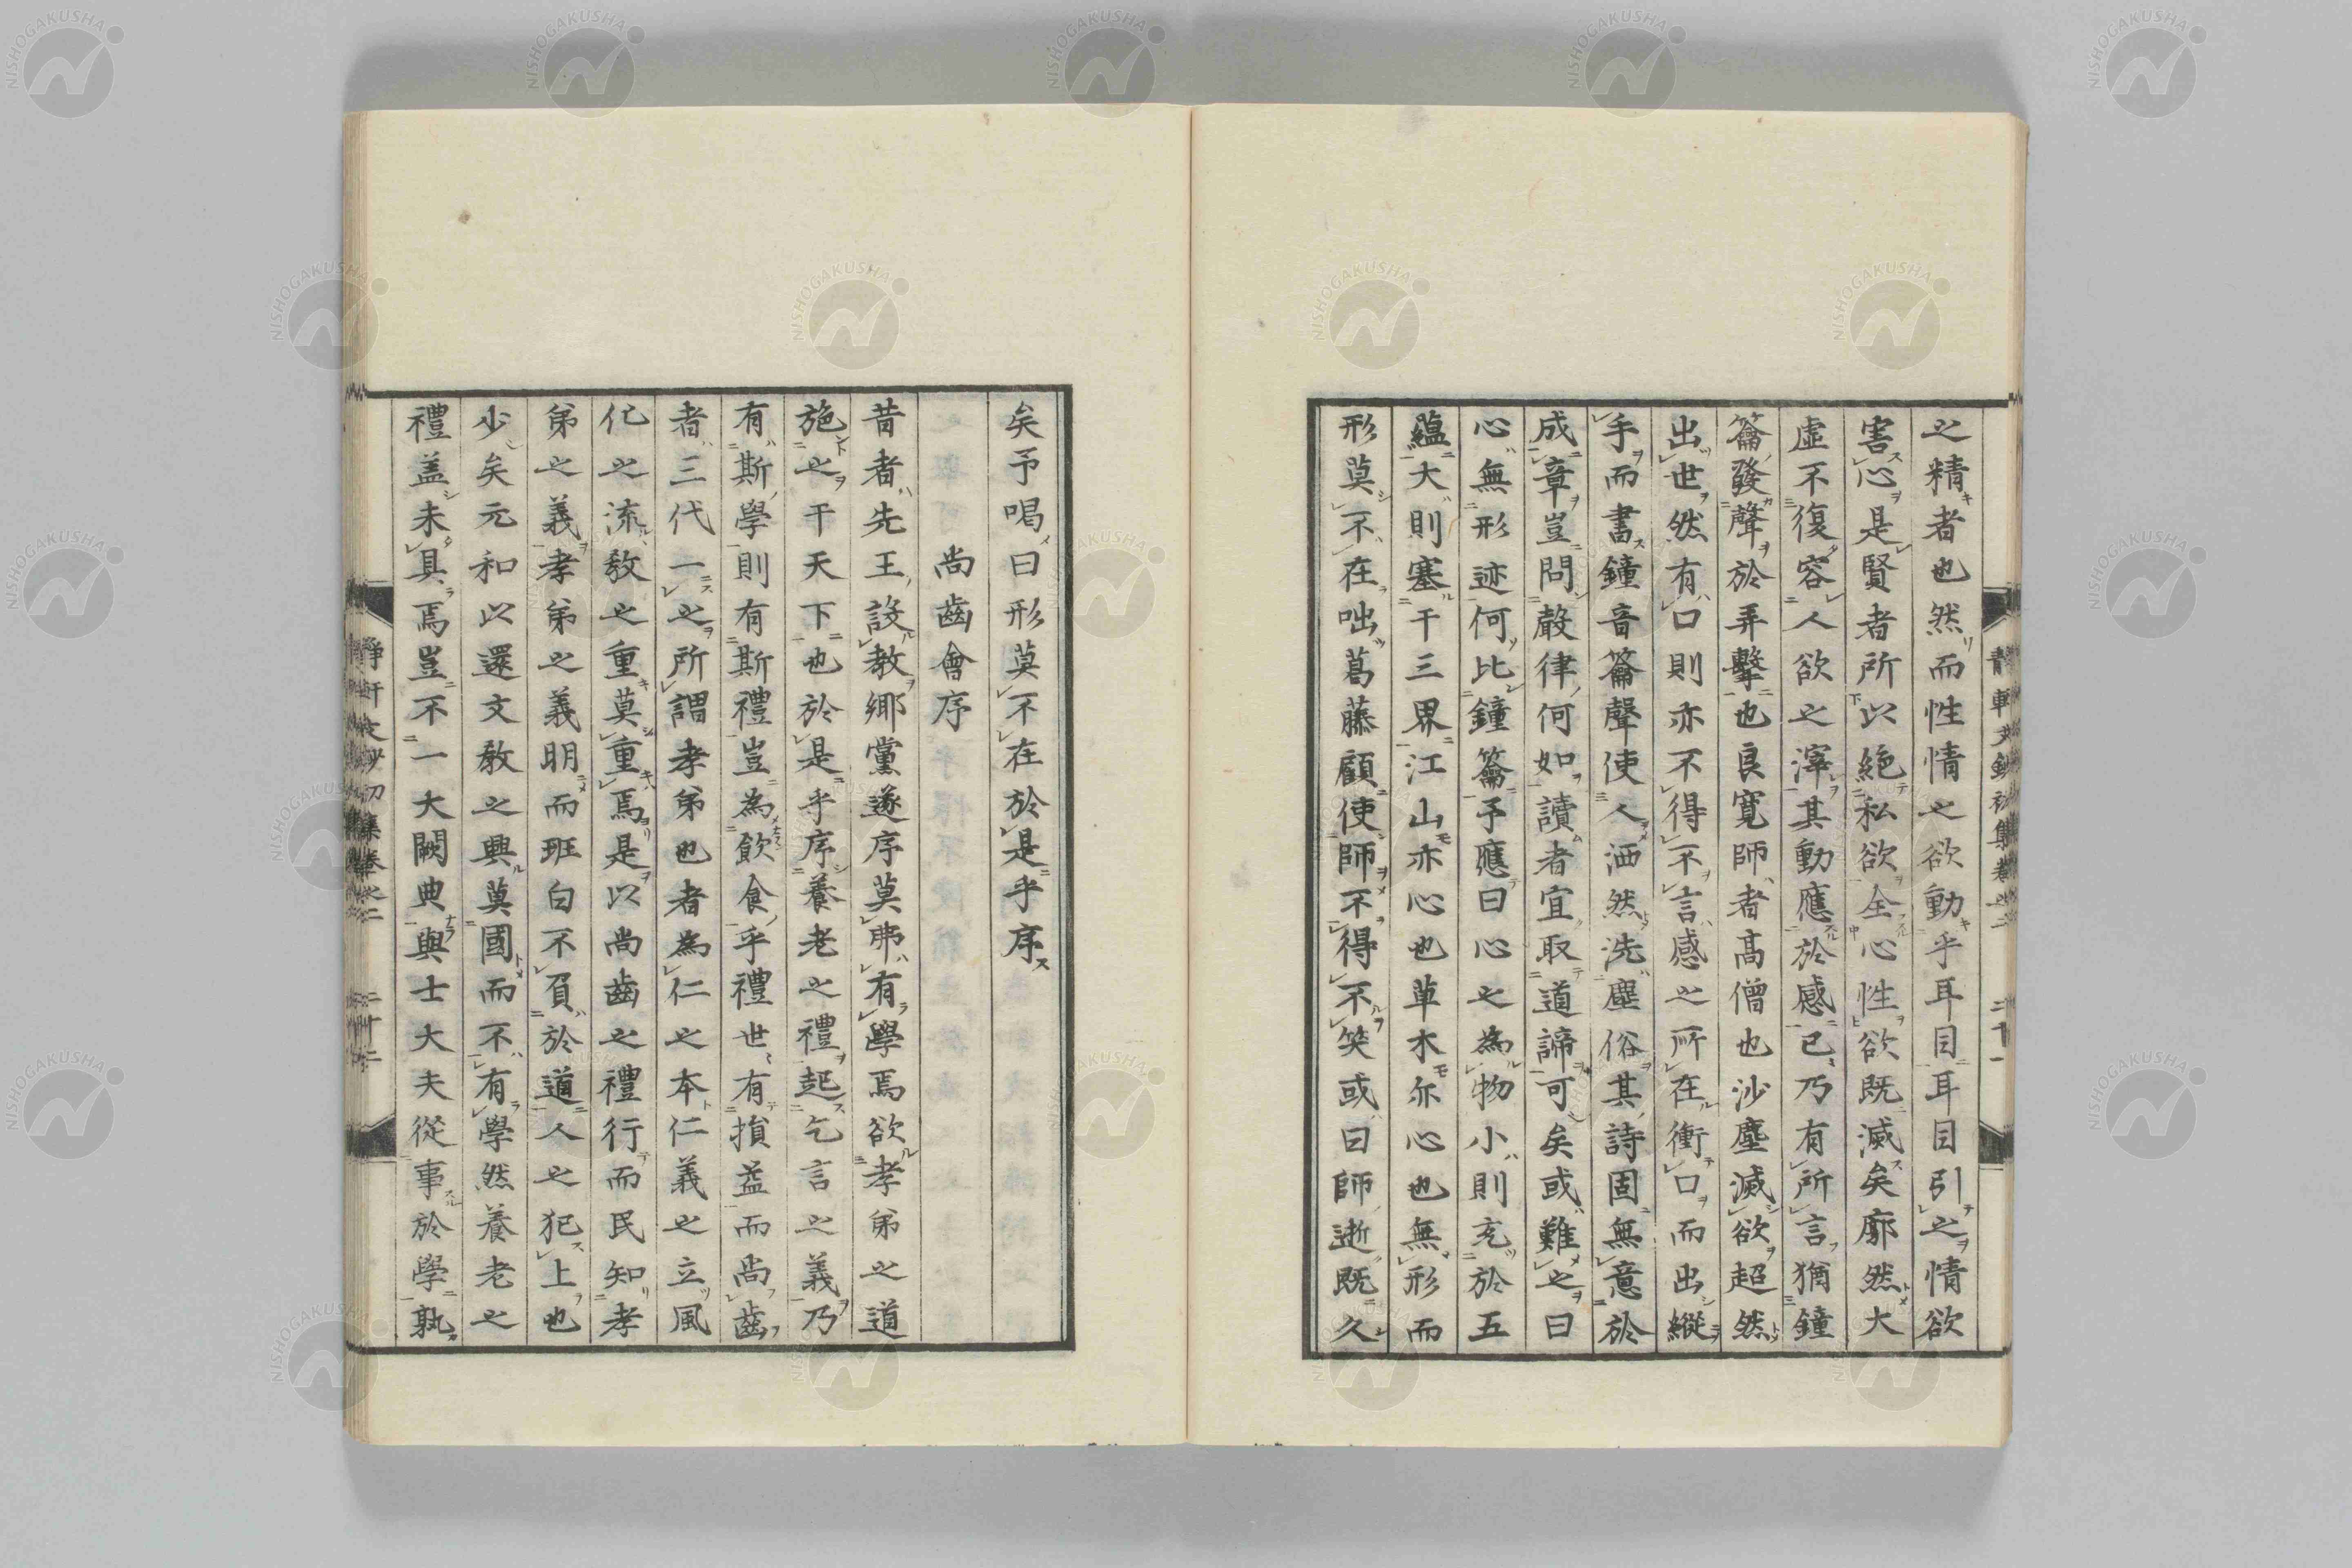 之精者也然而性情之欲動乎耳目耳目引之情欲
害心是賢者所以絶私欲全心性欲既滅矣廓然大
虛不復容人欲之滓其動應於感已乃有所言猶鐘
籥發聲於弄擊也良寛師者高僧也沙塵滅欲超然
出世然有口則亦不得不言感之所在衝口而出縱
手而書鐘音籥聲使人洒然洗塵俗其詩固無意於
成章豈問嚴律何如讀者宜取道諦可矣或難之曰
心無形迹何比鐘籥予應曰心之為物小則充於五
蘊大則塞于三界江山亦心也草木亦心也無形而
形莫不在咄葛藤顧使師不得不笑或曰師逝既久
矣予喝曰形莫不在於是乎序
尚齒會序
昔者先王設教鄉黨遂序莫弗有學焉欲孝弟之道
施之于天下也於是乎序養老之禮起乞言之義乃
有斯學則有斯禮豈為飲食乎禮世有損益而尚齒
者三代一之所謂孝弟也者為仁之本仁義之立風
化之流教之重莫重焉是以尚齒之禮行而民知孝
弟之義孝弟之義明而班白不負於道人之犯上也
少矣元和以還文教之興莫國而不有學然養老之
禮蓋未具焉豈不一大闕典與士大夫從事於學孰
NISHOGAKUSHA